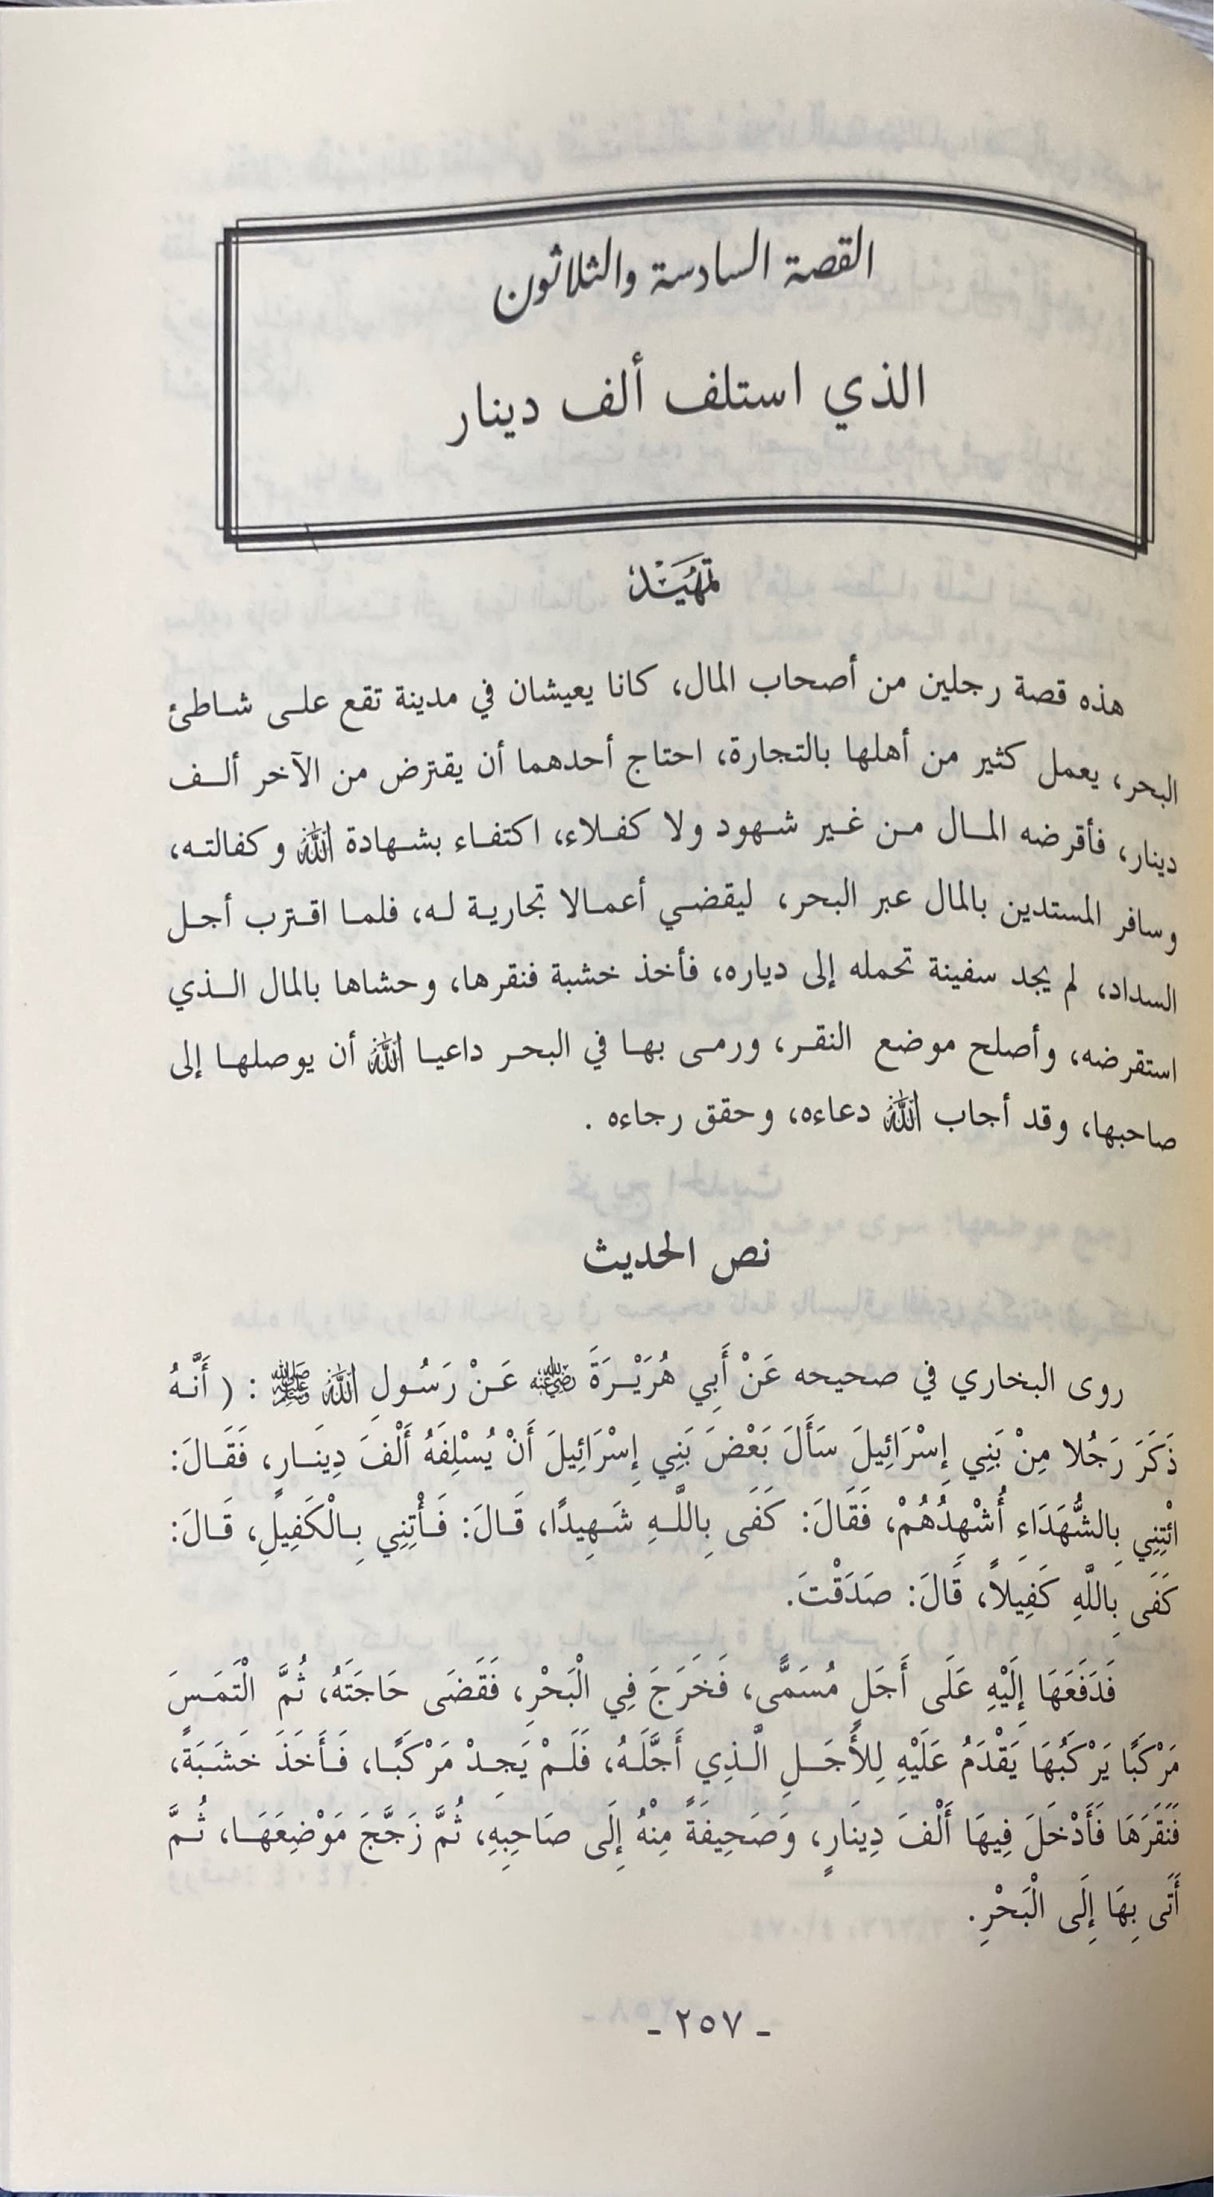 القصة السادسة والثلاثون
الذي استلف ألف دينار
تمهيد
هذه قصة رجلين من أصحاب المال، كانا يعيشان في مدينة تقع على شاطئ
البحر، يعمل كثير من أهلها بالتجارة، احتاج أحدهما أن يقترض من الآخر ألف
دينار، فأقرضه المال من غير شهود ولا كفلاء، اكتفاء بشهادة الله وكفالته،
وسافر المستدين بالمال عبر البحر، ليقضي أعمالا تجارية له، فلما اقترب أجل
السداد، لم يجد سفينة تحمله إلى دياره، فأخذ خشبة فنقرها، وحشاها بالمال الذي
استقرضه، وأصلح موضع النقر، ورمى بها في البحر داعيا الله أن يوصلها إلى
صاحبها، وقد أجاب الله دعاءه، وحقق رجاءه .
نص الحديث
روى البخاري في صحيحه عَنْ أَبِي هُرَيْرَةَ رضي الله عنه عَنْ رَسُولِ الله ﷺ : ( أَنَّهُ
ذَكَرَ رَجُلا مِنْ بَنِي إِسْرَائِيلَ سَأَلَ بَعْضَ بَنِي إِسْرَائِيلَ أَنْ يُسْلِفَهُ أَلْفَ دِينَارٍ، فَقَالَ:
ائْتِنِي بِالشُّهَدَاءِ أُشْهِدُهُمْ، فَقَالَ: كَفَى بِاللَّهِ شَهِيدًا، قَالَ: فَأْتِنِي بِالْكَفِيلِ، قَالَ:
كَفَى بِاللَّهِ كَفِيلاً، قَالَ: صَدَقْتَ.
فَدَفَعَهَا إِلَيْهِ عَلَى أَجَلٍ مُسَمًّى، فَخَرَجَ فِي الْبَحْرِ، فَقَضَى حَاجَتَهُ، ثُمَّ الْتَمَسَ
مَرْكَبًا يَرْكَبُهَا يَقْدَمُ عَلَيْهِ لِلأَجَلِ الَّذِي أَجَّلَهُ، فَلَمْ يَجِدْ مَرْكَبًا، فَأَخَذَ خَشَبَةً،
فَنَقَرَهَا فَأَدْخَلَ فِيهَا أَلْفَ دِينَارٍ، وَصَحِيفَةً مِنْهُ إِلَى صَاحِبِهِ، ثُمَّ زَجَّجَ مَوْضِعَهَا، ثُمَّ
أَتَى بِهَا إِلَى الْبَحْرِ.
- ٢٥٧ -